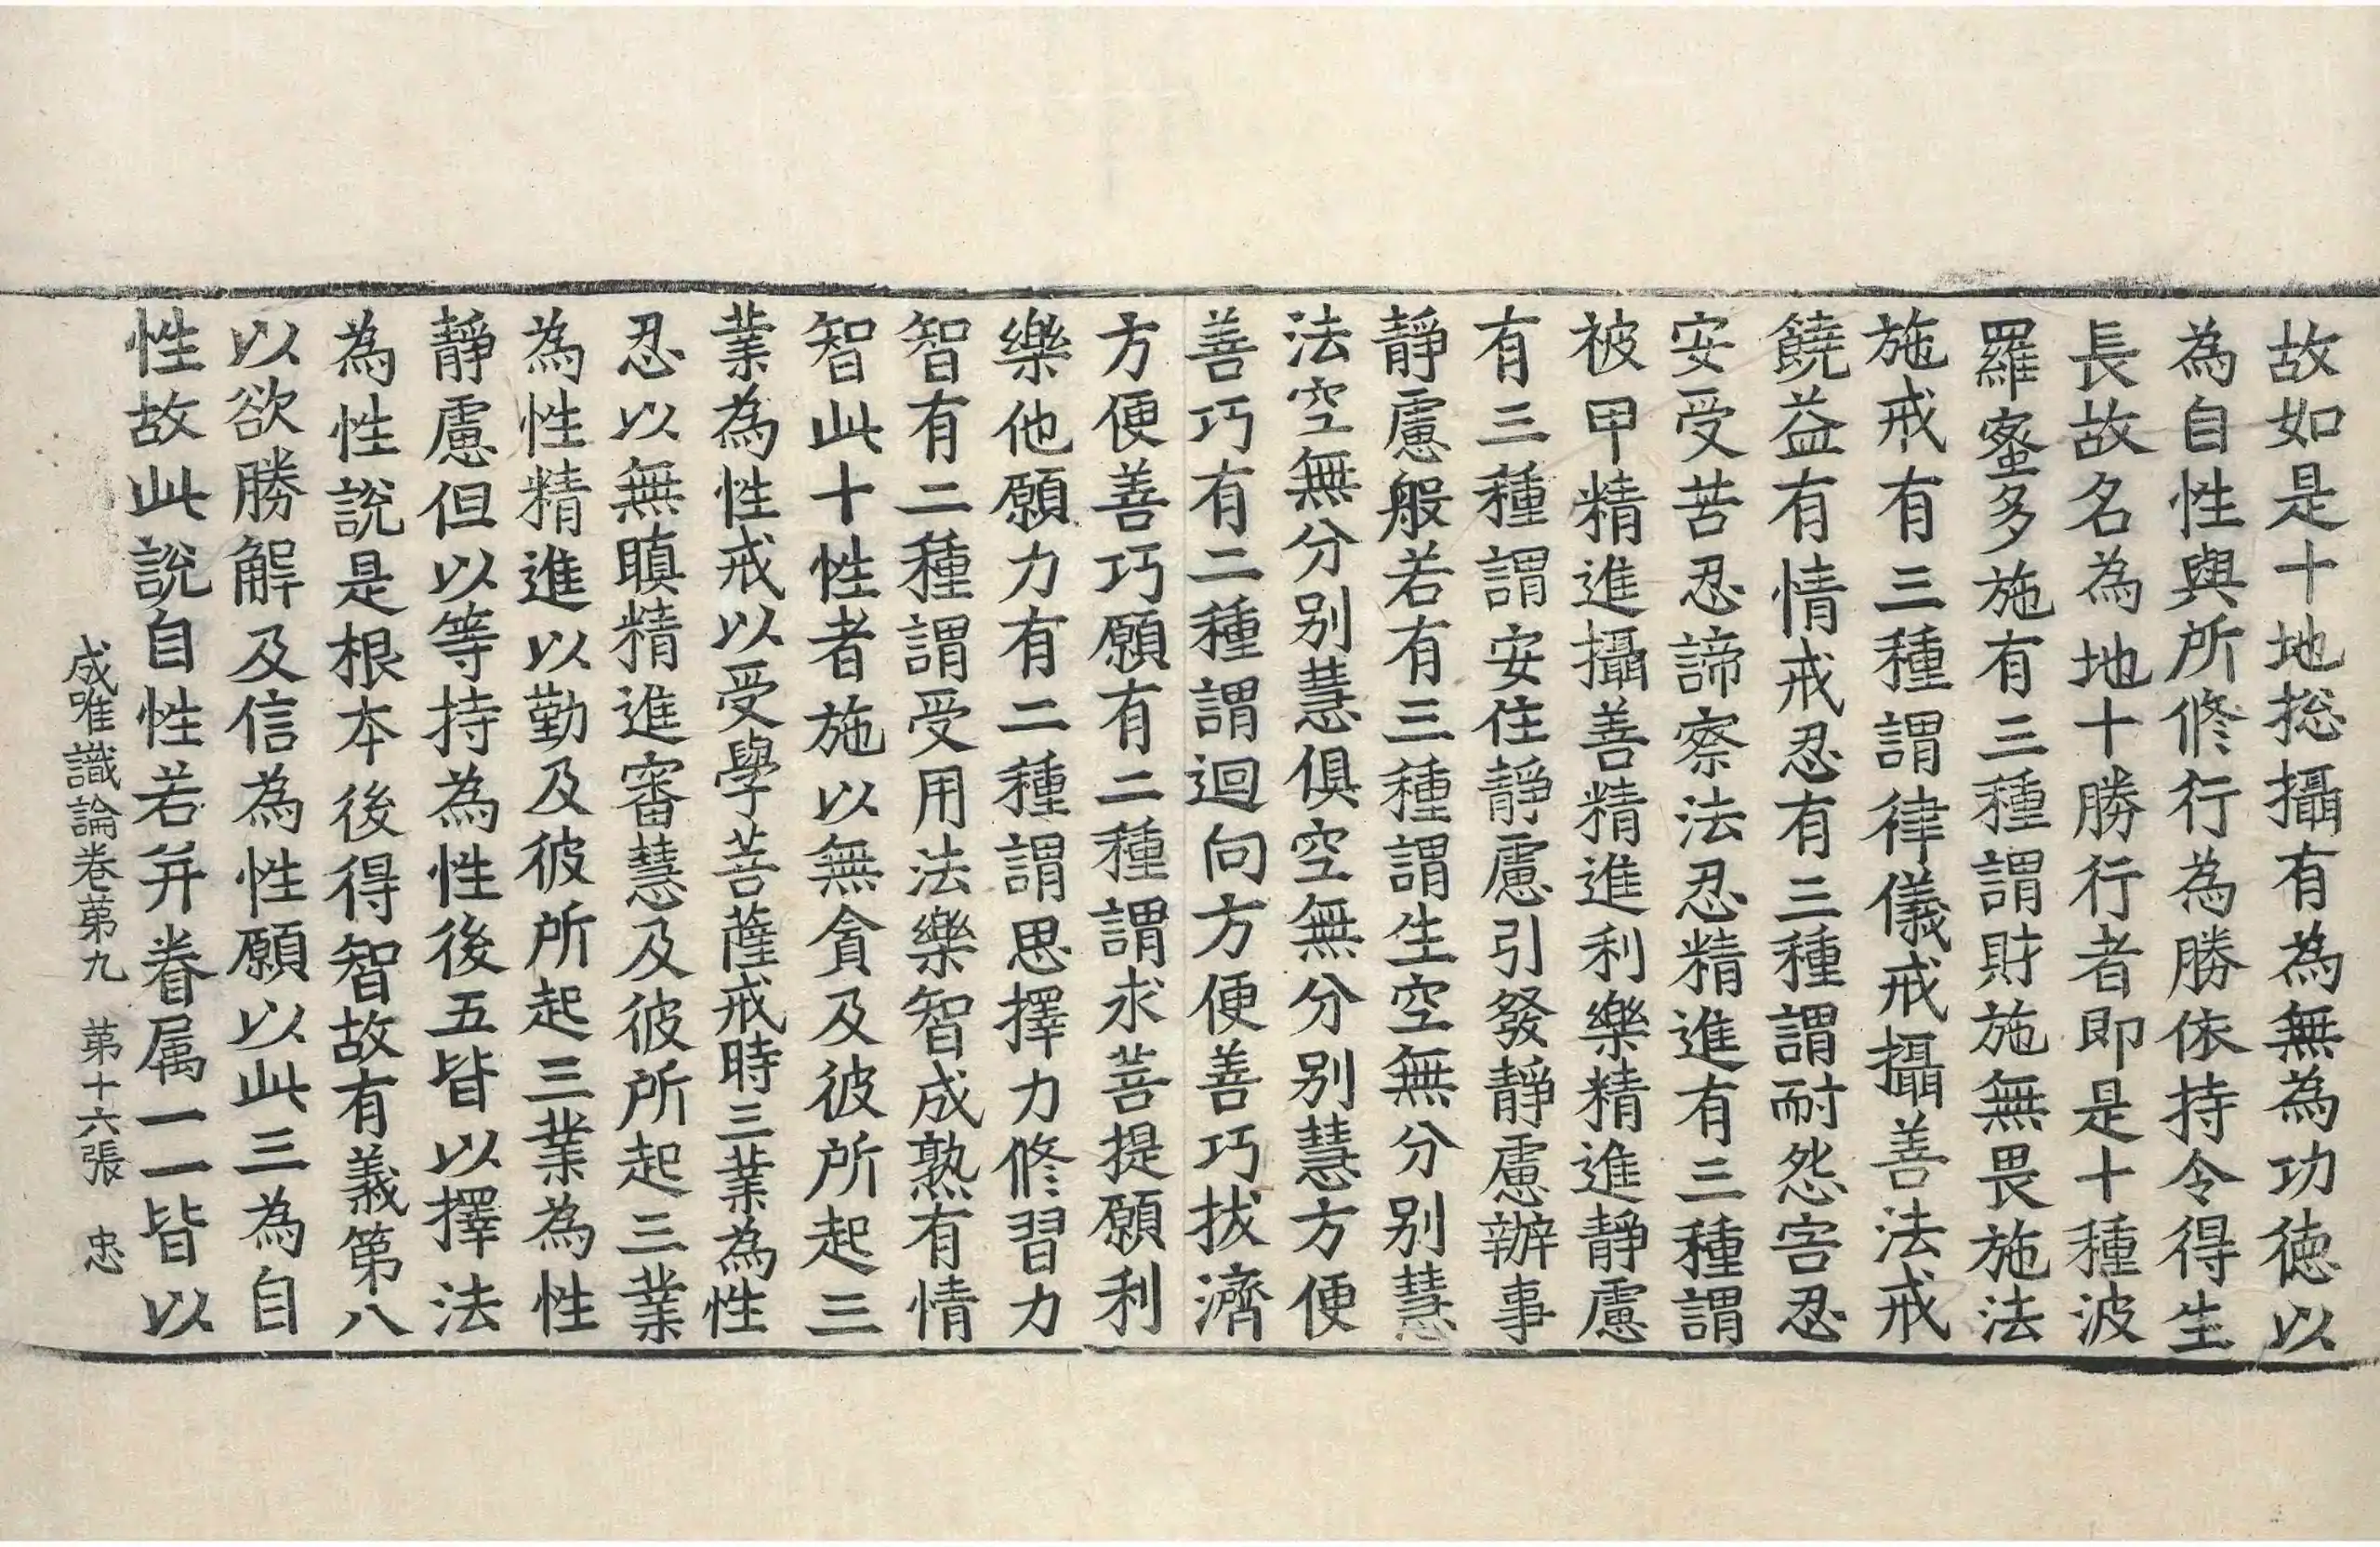 故如是十地捴攝有為無為功徳以
為自性與所修行為勝依持令得生
長故名為地十勝行者即是十種波
羅蜜多施有三種謂財施無畏施法
施戒有三種謂律儀戒攝善法戒
饒益有情戒忍有三種謂耐怨害忍
安受苦忍諦察法忍精進有三種謂
被甲精進攝善精進利樂精進靜慮
有三種謂安住靜慮引發靜慮辦事
靜慮般若有三種謂生空無分別慧
法空無分別慧俱空無分別慧方便
善巧有二種謂迴向方便善巧拔濟
方便善巧願有二種謂求菩提願利
樂他願力有二種謂思擇力修習力
智有二種謂受用法樂智成熟有情
智此十性者施以無貪及彼所起三
業為性戒以受學菩薩戒時三業為性
忍以無瞋精進審慧及彼所起三業
為性精進以勤及彼所起三業為性
靜慮但以等持為性後五皆以擇法
為性說是根本後得智故有義第八
以欲勝解及信為性願以此三為自
性故此說自性若并眷属一一皆以
成唯識論卷第九 第十六張 忠